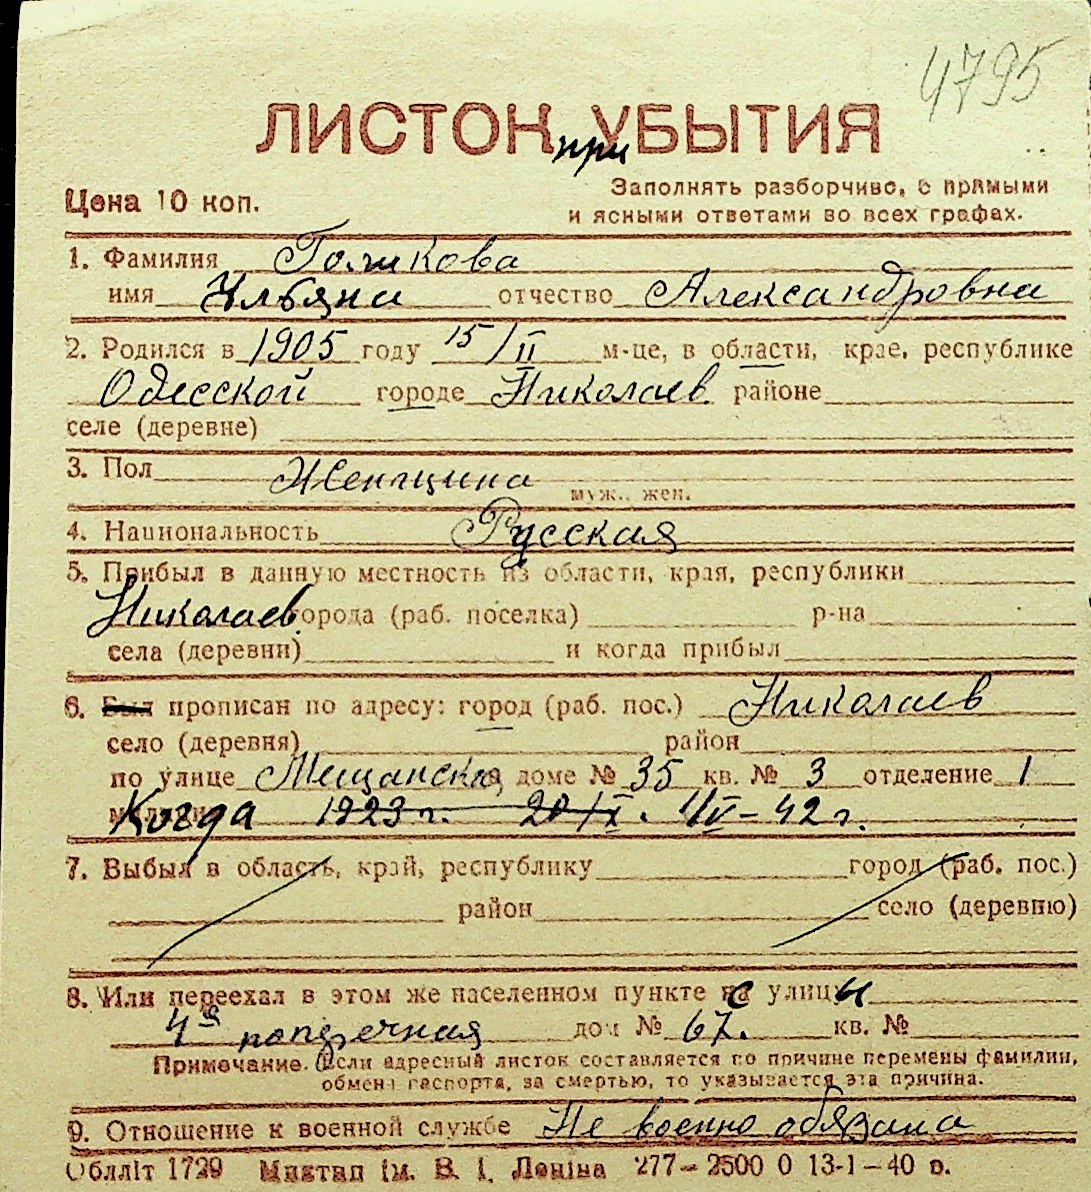 4795
ЛИСТОК при УБЫТИЯ
Цена 10 коп.
Заполнять разборчиво, с прямыми
и ясными ответами во всех графах.
1. Фамилия Голикова
имя Ульяна отчество Александровна
2. Родился в 1905 году 15/II м-це, в области, крае, республике
Одесской городе Николаев районе
селе (деревне)
3. Пол Женщина
муж., жен.
4. Национальность Русская
5. Прибыл в данную местность из области, края, республики
Николаев города (раб. поселка) р-на
села (деревни) и когда прибыл
6. Был прописан по адресу: город (раб. пос.) Николаев
село (деревня) район
по улице Мещанская доме № 35 кв. № 3 отделение 1
Когда 1923 г. 20/IX. 1/IV-42 г.
7. Выбыл в область, край, республику город (раб. пос.)
район село (деревню)
8. Или переехал в этом же населенном пункте с улицы
4я поперечная дом № 67. кв. №
Примечание. Если адресный листок составляется по причине перемены фамилии,
обмена паспорта, за смертью, то указывается эта причина.
9. Отношение к военной службе Не военно обязана
Обллiт 1729 Миктип iм. В. I. Ленiна 277—2500 0 13-1—40 в.